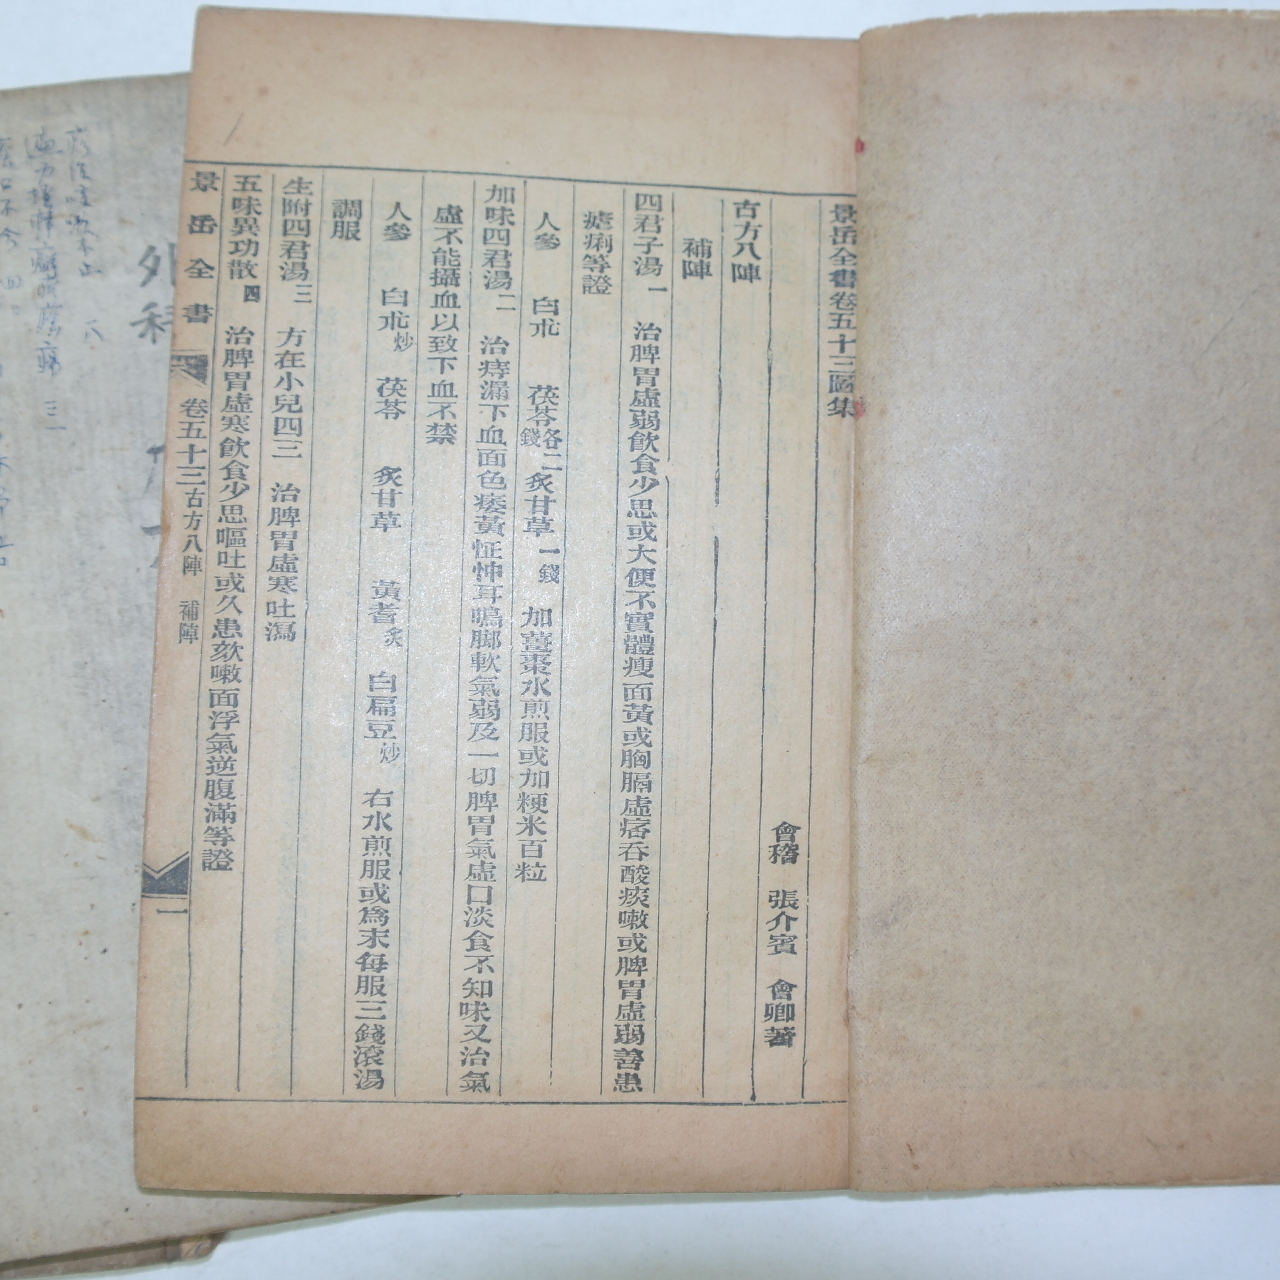 景岳全書卷五十三圖集
會稽　張介賓　會卿著
古方八陣
補陣
四君子湯一　治脾胃虛弱飲食少思或大便不實體瘦面黃或胸膈虛痞吞酸痰嗽或脾胃虛弱善患
瘧痢等證
人參　白朮　茯苓各二錢　炙甘草一錢　加薑棗水煎服或加粳米百粒
加味四君湯二　治痔漏下血面色痿黃怔忡耳鳴脚軟氣弱及一切脾胃氣虛口淡食不知味又治氣
虛不能攝血以致下血不禁
人參　白朮炒　茯苓　炙甘草　黃耆炙　白扁豆炒　右水煎服或為末每服三錢滾湯
調服
生附四君湯三　方在小兒四三　治脾胃虛寒吐瀉
五味異功散四　治脾胃虛寒飲食少思嘔吐或久患欬嗽面浮氣逆腹滿等證
景岳全書　卷五十三古方八陣　補陣　一
外科